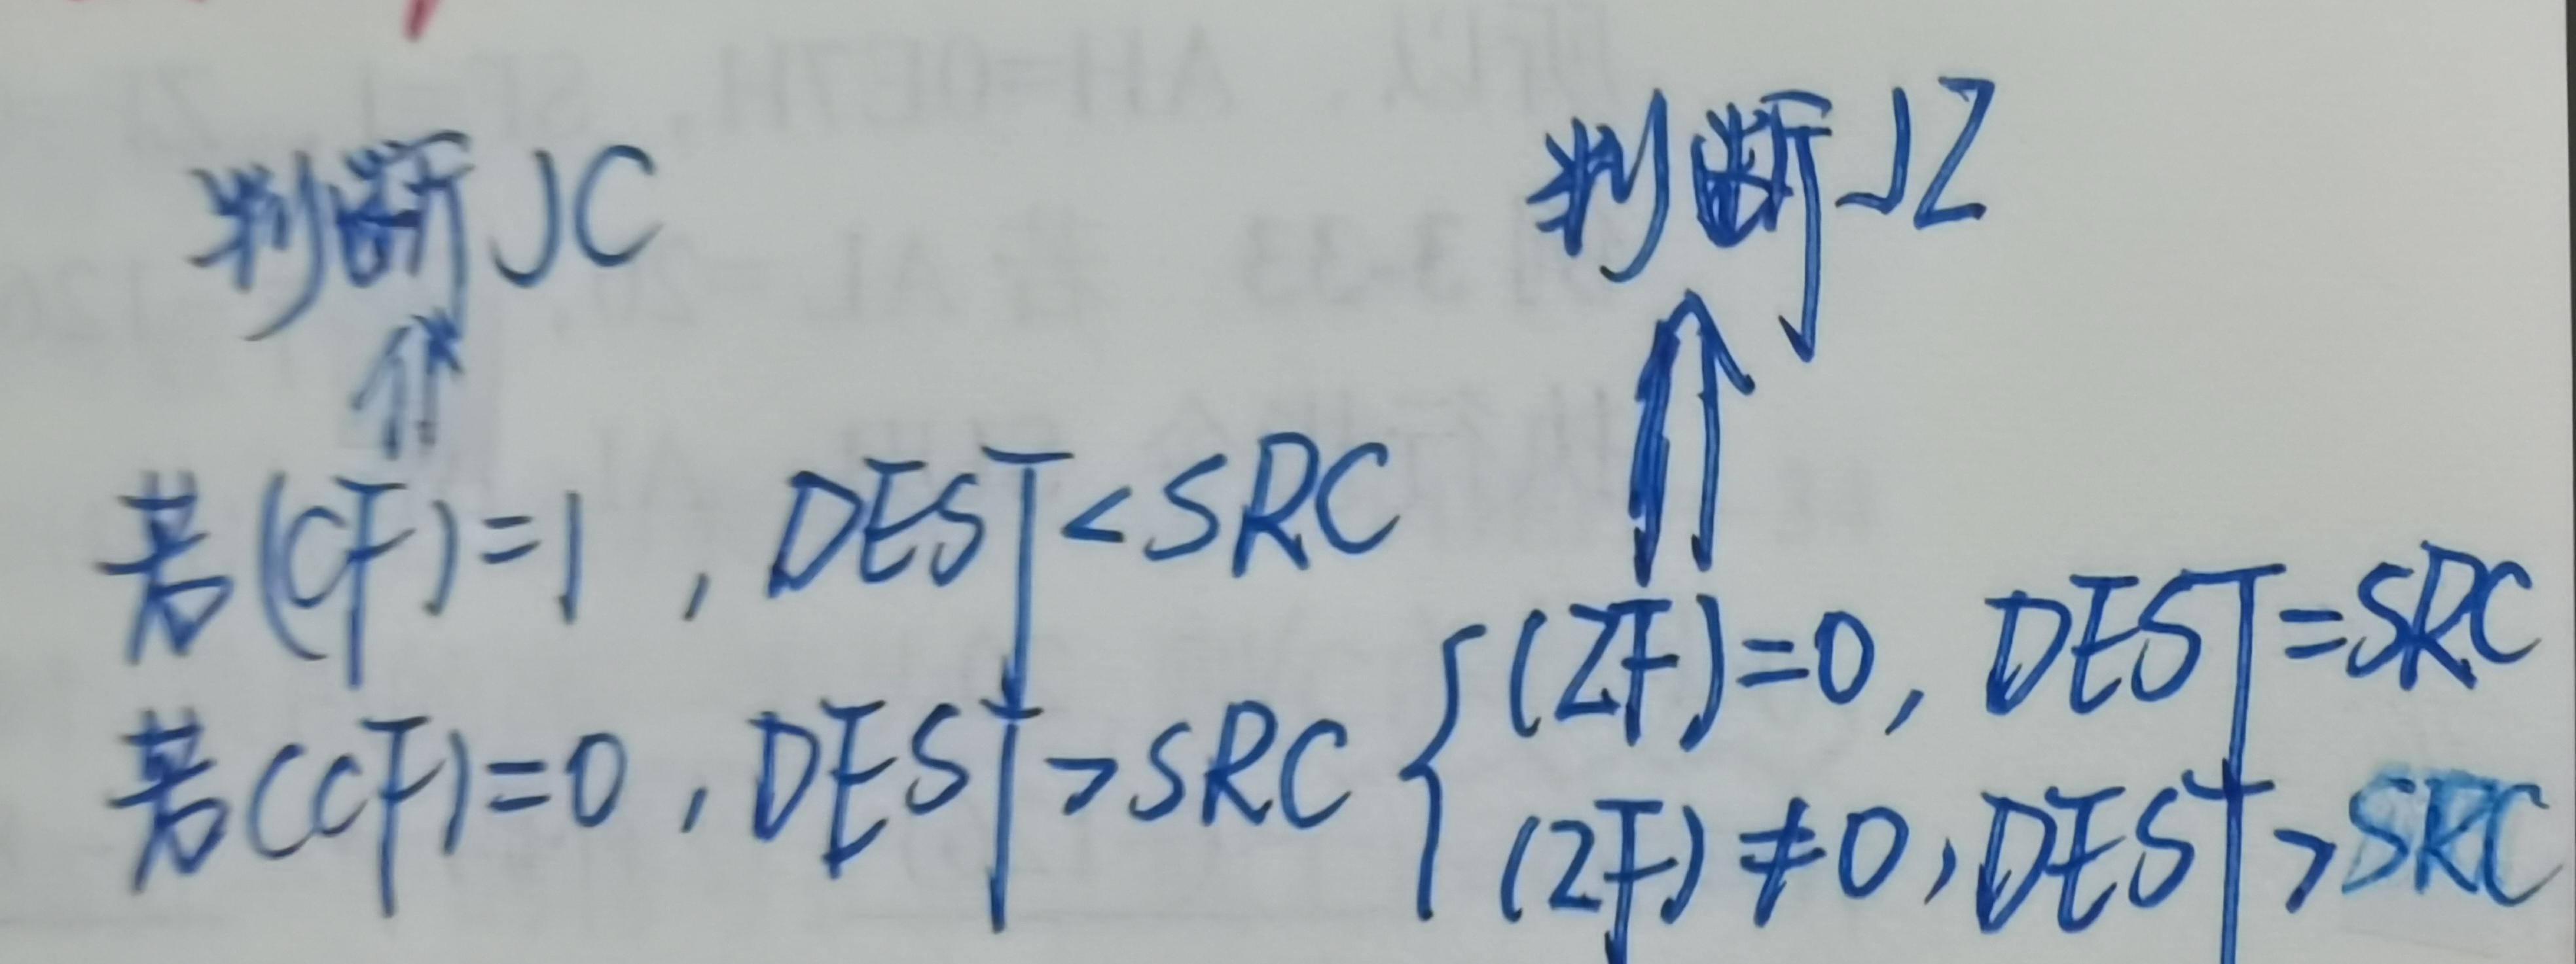 判断JC
判断JZ
若(CF)=1, DEST<SRC
若(CF)=0, DEST>SRC
(ZF)=0, DEST=SRC
(ZF)≠0, DEST>SRC